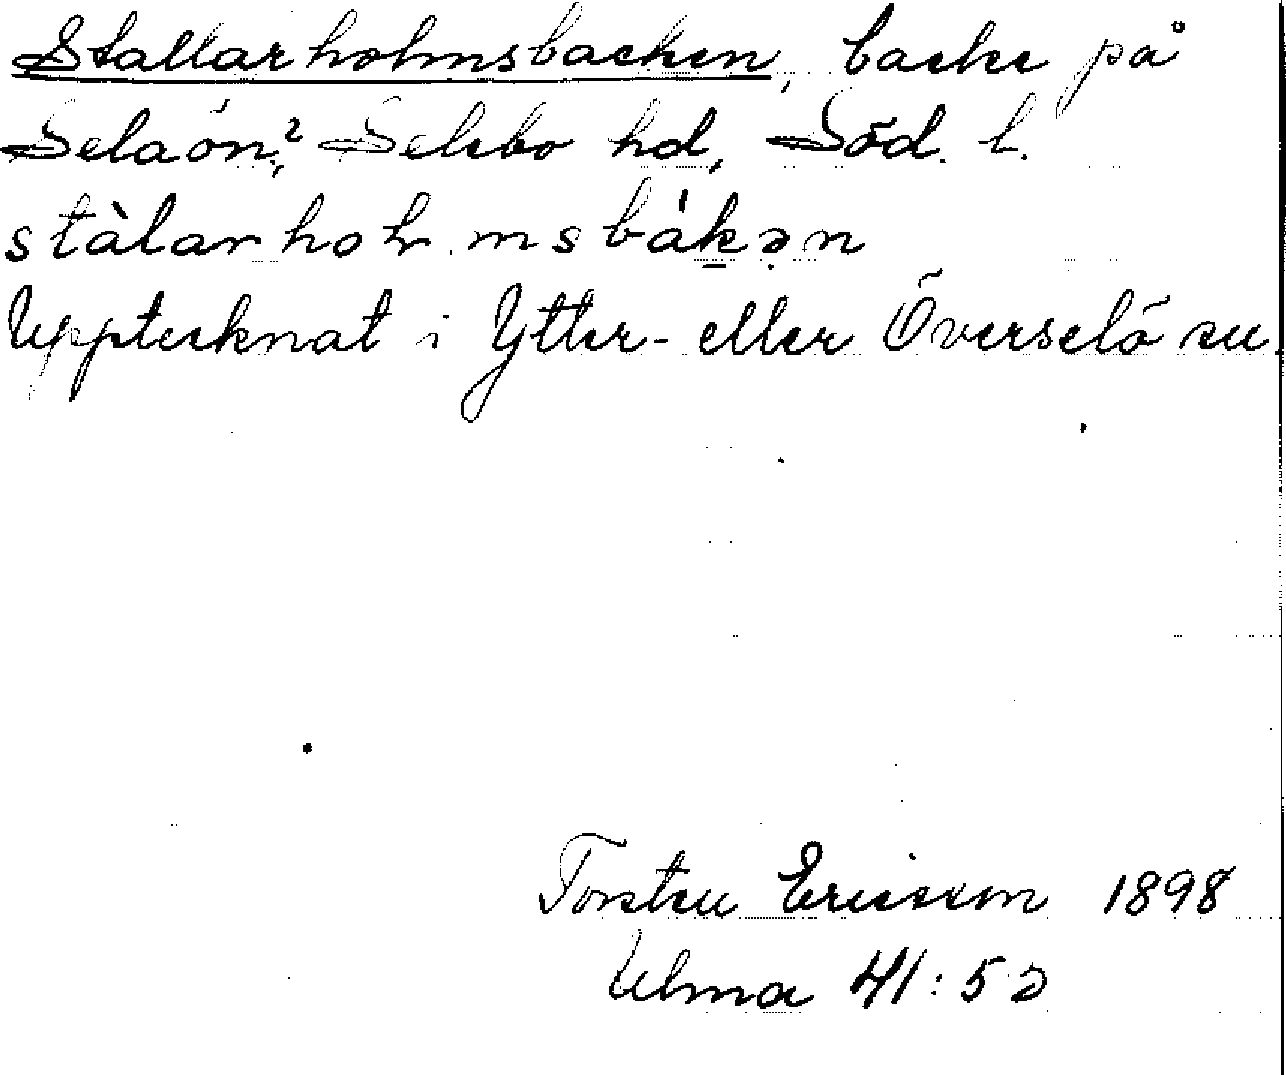 Stallarholmsbacken, backe på
Selaön?, Selebo hd, Söd. l.
stàlarhol.msbák̠ən
Upptecknat i Ytter- eller Överselö sn.
Torsten Ericsson 1898
Ulma 41:52